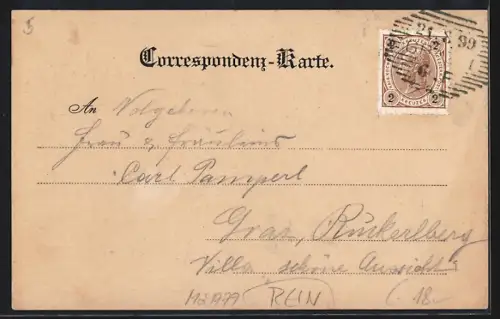 5
21 8 99
Correspondenz-Karte.
2 KREUZER 2
An Wolgeboren
Frau & Fräuleins
Carl Pamperl
Graz, Ruckerlberg
Villa schöne Aussicht
REIN 18.-